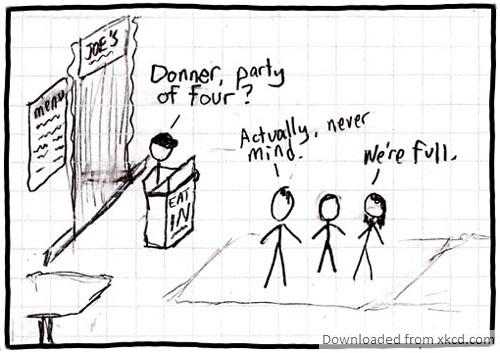 JOE'S
menu
Donner, party
of four?
Actually, never
mind.
We're full.
EAT
IN
Downloaded from xkcd.com